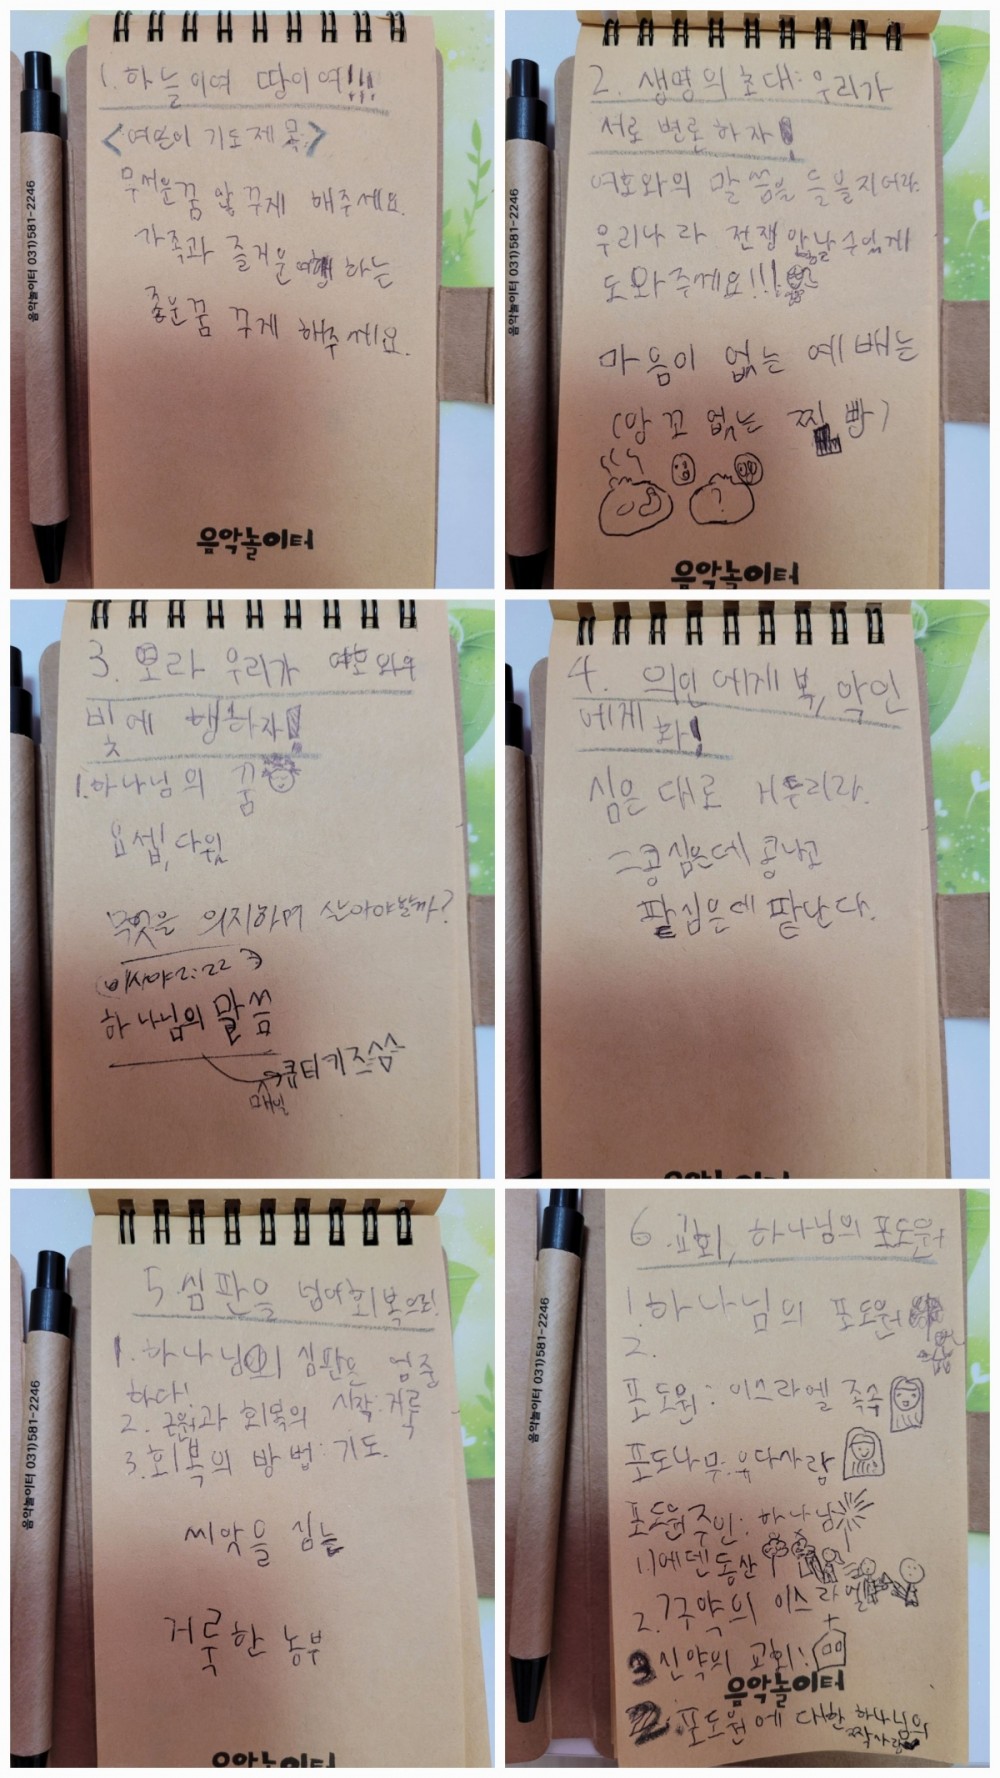 1. 하늘이여 땅이여!!!
<여은이 기도제목>
무서운꿈 않 꾸게 해주세요.
가족과 즐거운 여행 하는
좋은꿈 꾸게 해주세요.
음악놀이터
음악놀이터 031)581-2246
2. 생명의 초대: 우리가
서로 변론하자!
여호와의 말씀을 들을지어다.
우리나라 전쟁 안날수있게
도와주께요!!!
마음이 없는 예배는
(앙꼬 없는 찐빵)
음악놀이터
음악놀이터 031)581-2246
3. 오라 우리가 여호와의
빛에 행하자!
1.하나님의 꿈
요셉, 다윗
무엇을 의지하며 살아야할까?
이사야2:22
하나님의 말씀
큐티키즈
매일
4. 의인에게 복, 악인
에게 화!
심은 대로 거두리라.
=콩심은데 콩나고
팥심은데 팥난다.
음악놀이터
5. 심판을 넘어회복으로!
1. 하나님의 심판은 엄중
하다!
2. 구원과 회복의 시작:거룩
3.회복의 방법:기도.
씨악을 심는
거룩한 농부
음악놀이터
음악놀이터 031)581-2246
6. 교회, 하나님의 포도원
1.하나님의 포도원
2.
포도원: 이스라엘 족속
포도나무:유다사람
포도원주인:하나님
1.에덴동산
2.구약의 이스라엘
3 신약의 교회:
음악놀이터
2. 포도원에 대한 하나님의
짝사랑
음악놀이터 031)581-2246